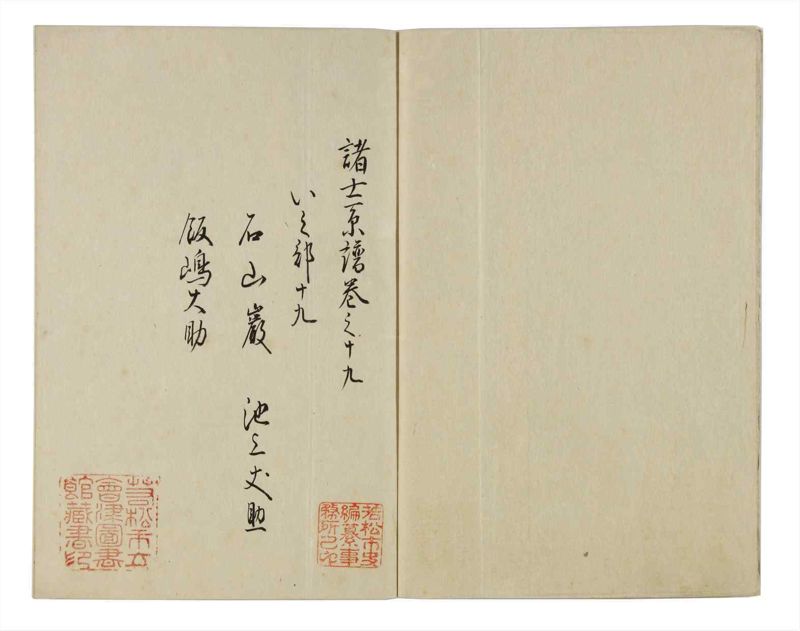 諸士系譜卷之十九
い之部十九
石山巖 池上丈助
飯嶋大助
若松市史
編纂事
務所之印
若松市立
會津圖書
館藏書印